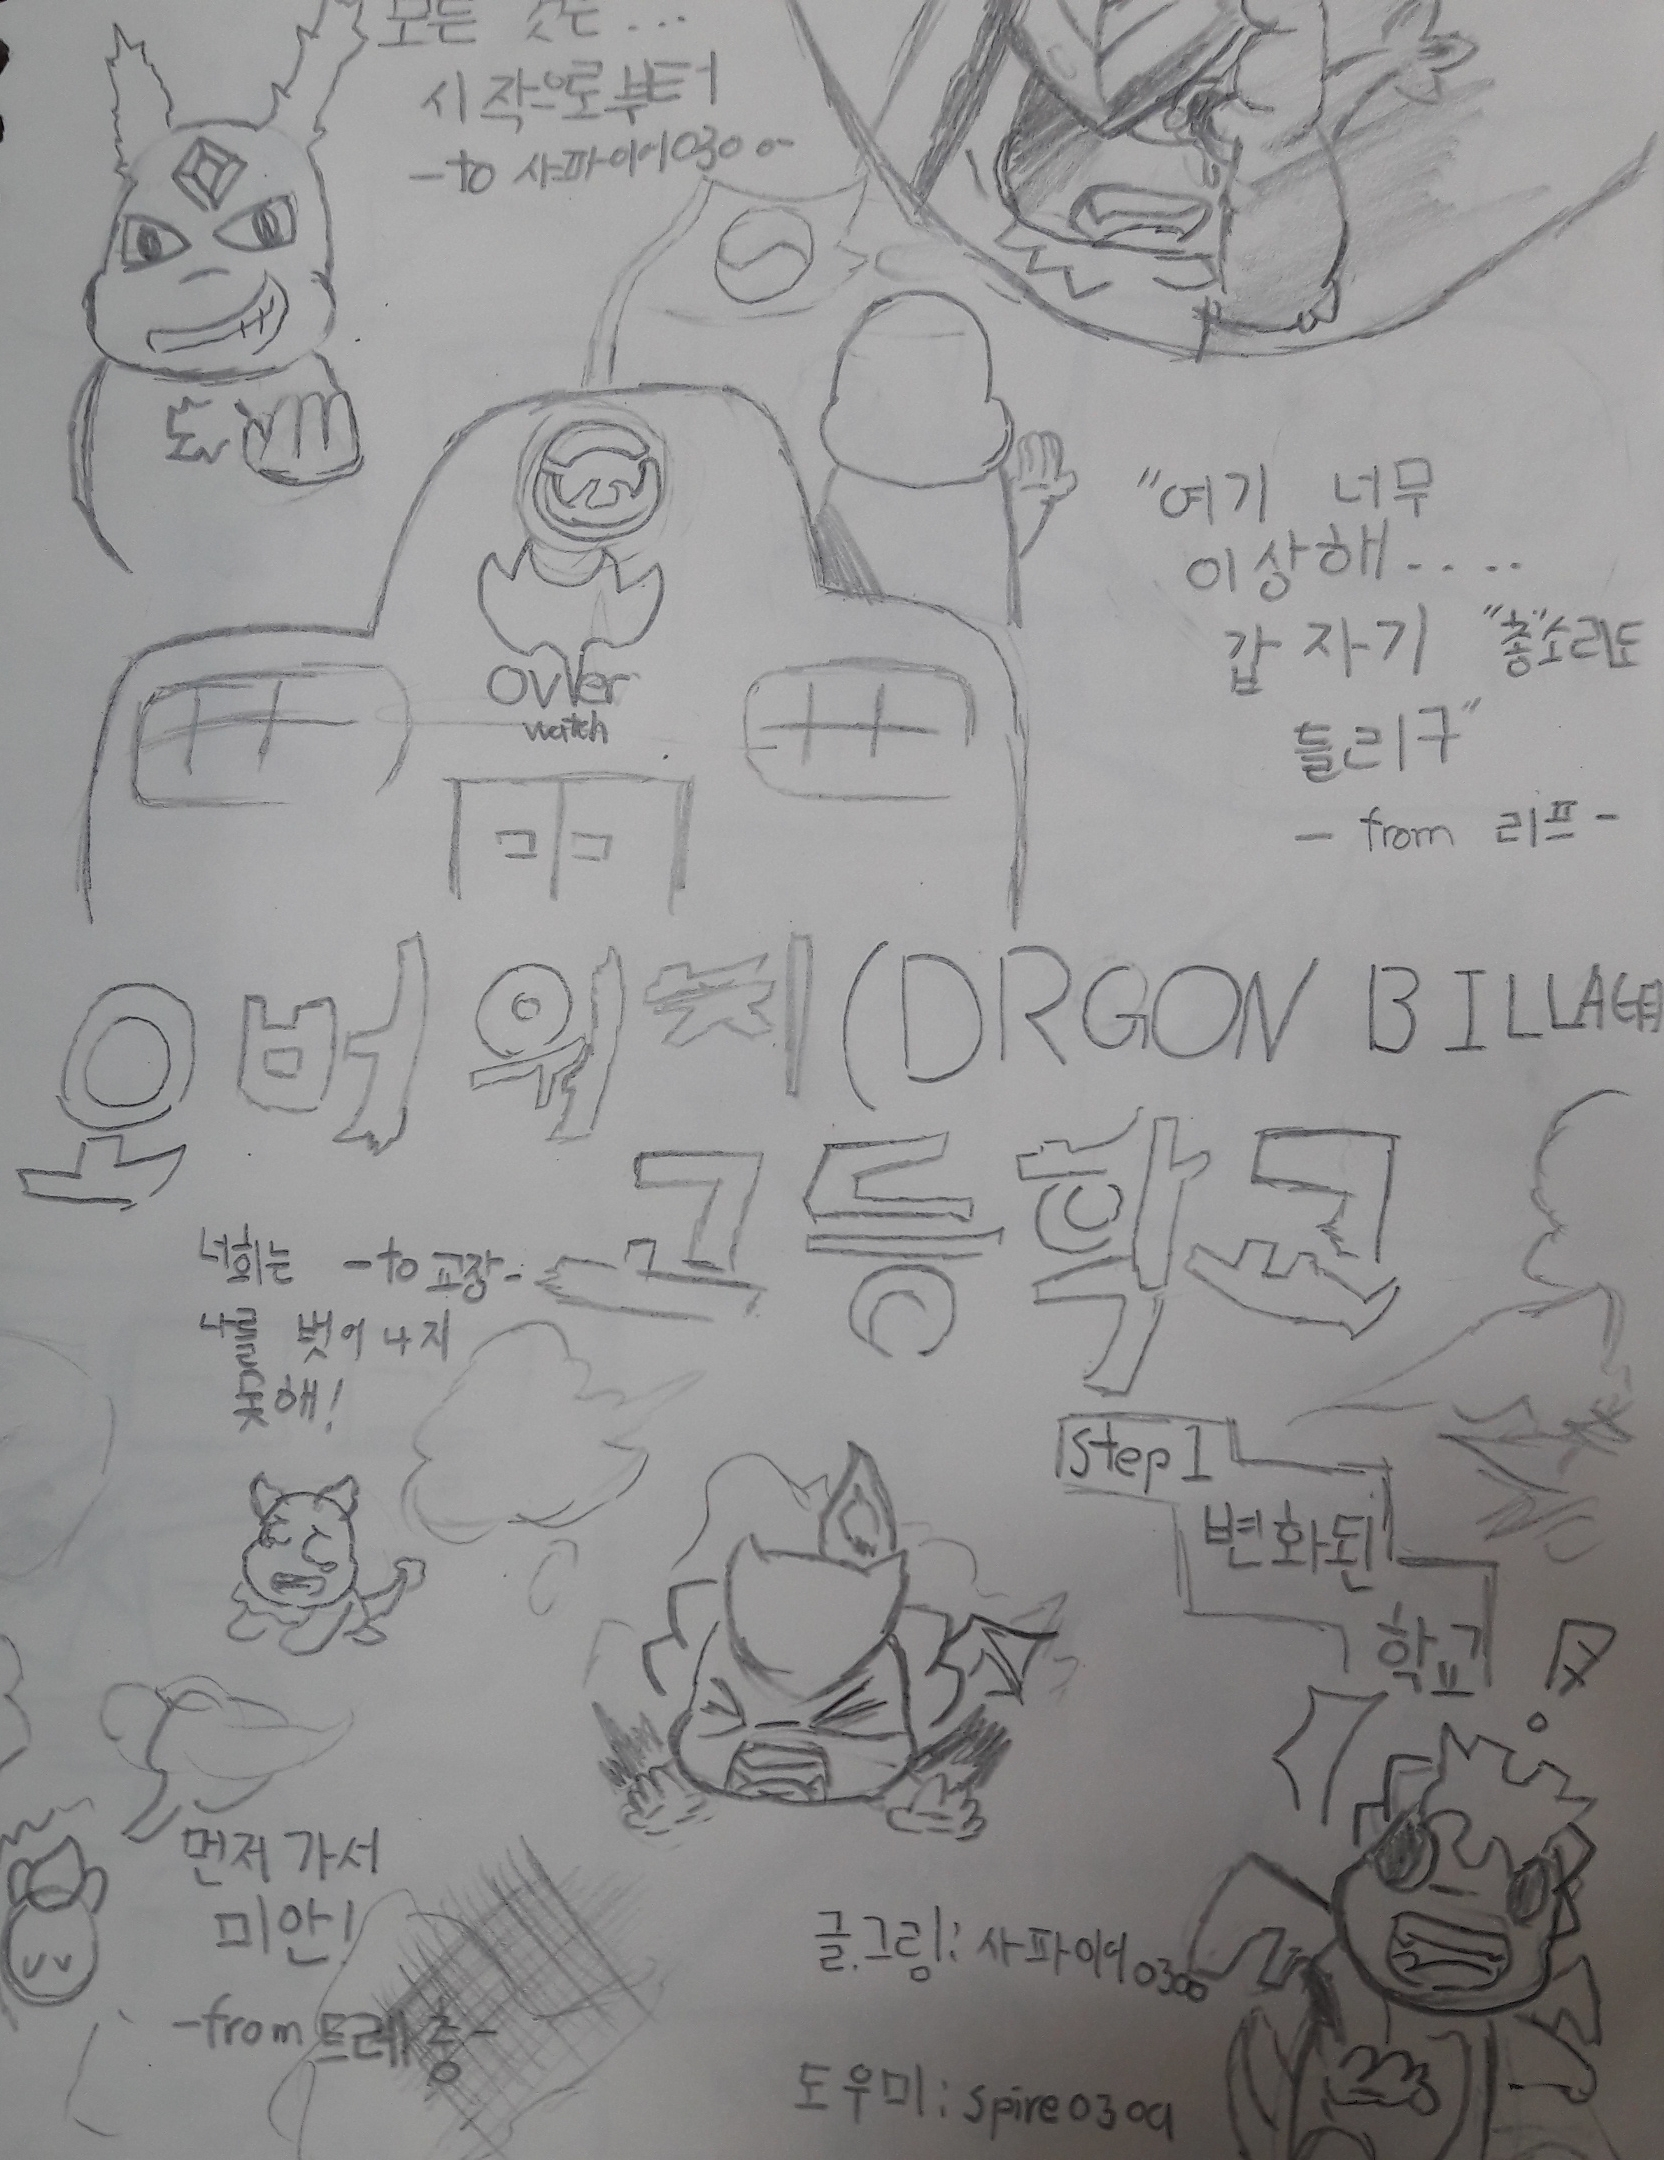 모든 것은...
시작으로부터
-to 사파이어0300-
over
watch
"여기 너무
이상해....
갑자기 "총"소리도
들리구"
- from 리프 -
오버워치(DRGON BILLAGE)
고등학교
너희는 -to 교장-
나를 벗어나지
못해!
Step 1
변화된
학교
먼저 가서
미안!
-from 드레 -
글.그림: 사파이어0300
도우미: spire030a